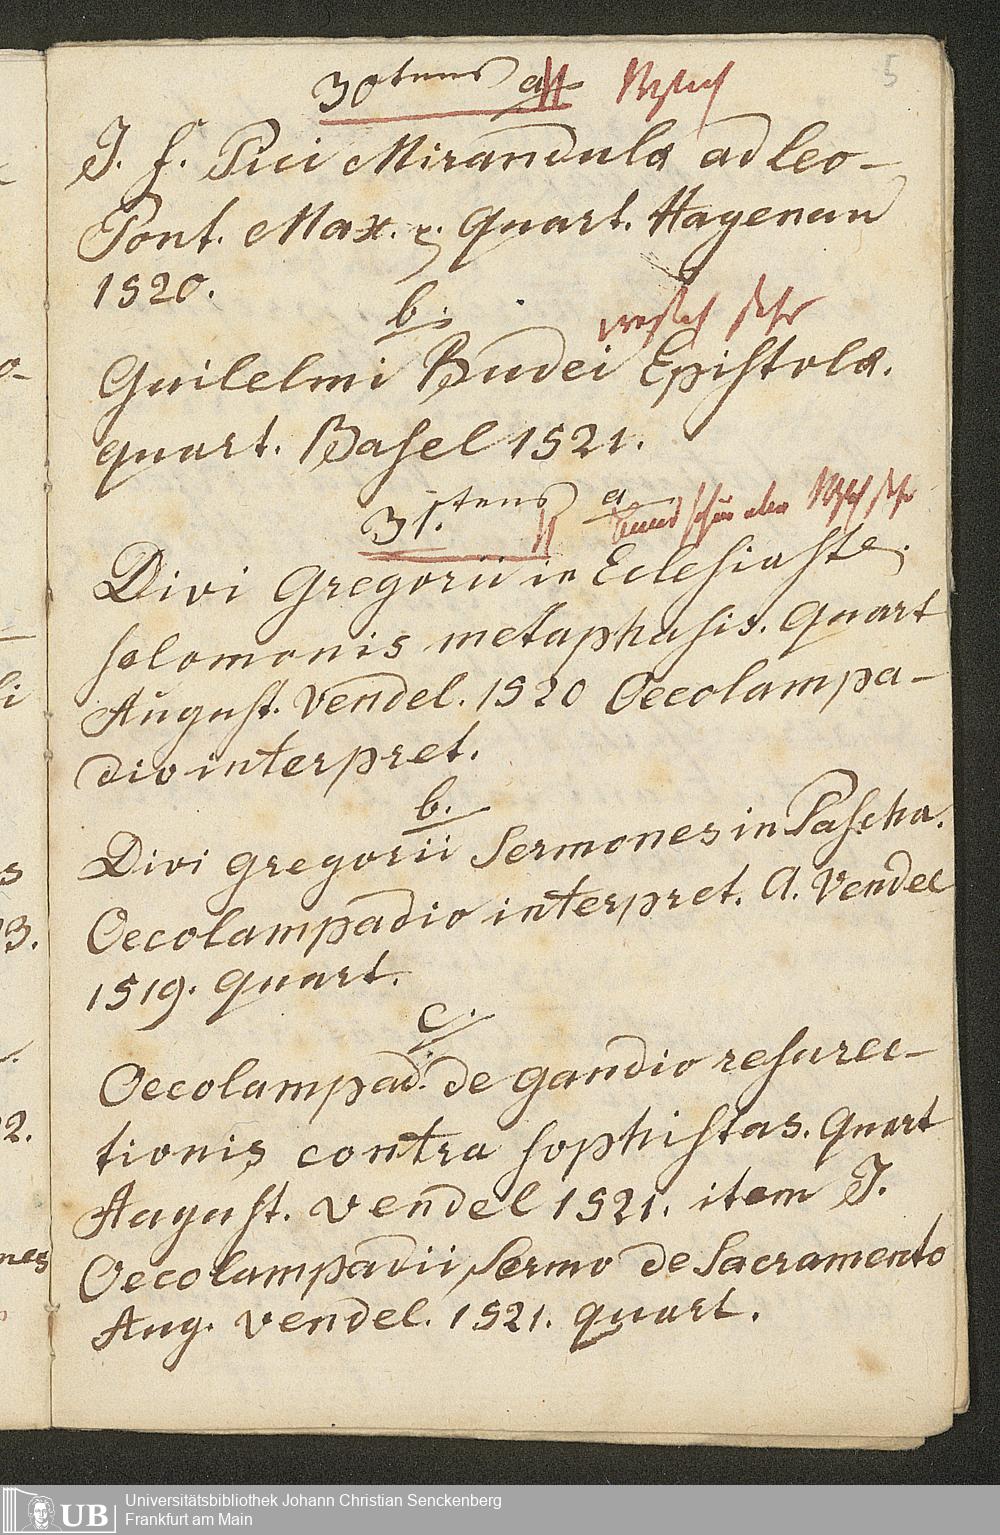 5
30tens a
J. f. Pici Mirandulæ ad Leo-
Pont. Max. quart. Hagenau
1520.
b.
Guilelmi Budei Epistolæ.
quart. Basel 1521.
31.tens a
Divi Gregorii in Eclesiaste.
salomonis metaphasis. quart
August. Vendel. 1520 Oecolampa-
dio interpret.
b.
Divi gregorii Sermones in Pascha.
Oecolampadio interpret. A. Vendel
1519. quart.
c.
Oecolampad. de gaudio resurec-
tionis contra sophistas. quart
August. vendel 1521. item J.
Oecolampadii Sermo de Sacramento
Aug. vendel. 1521. quart.
UB
Universitätsbibliothek Johann Christian Senckenberg
Frankfurt am Main